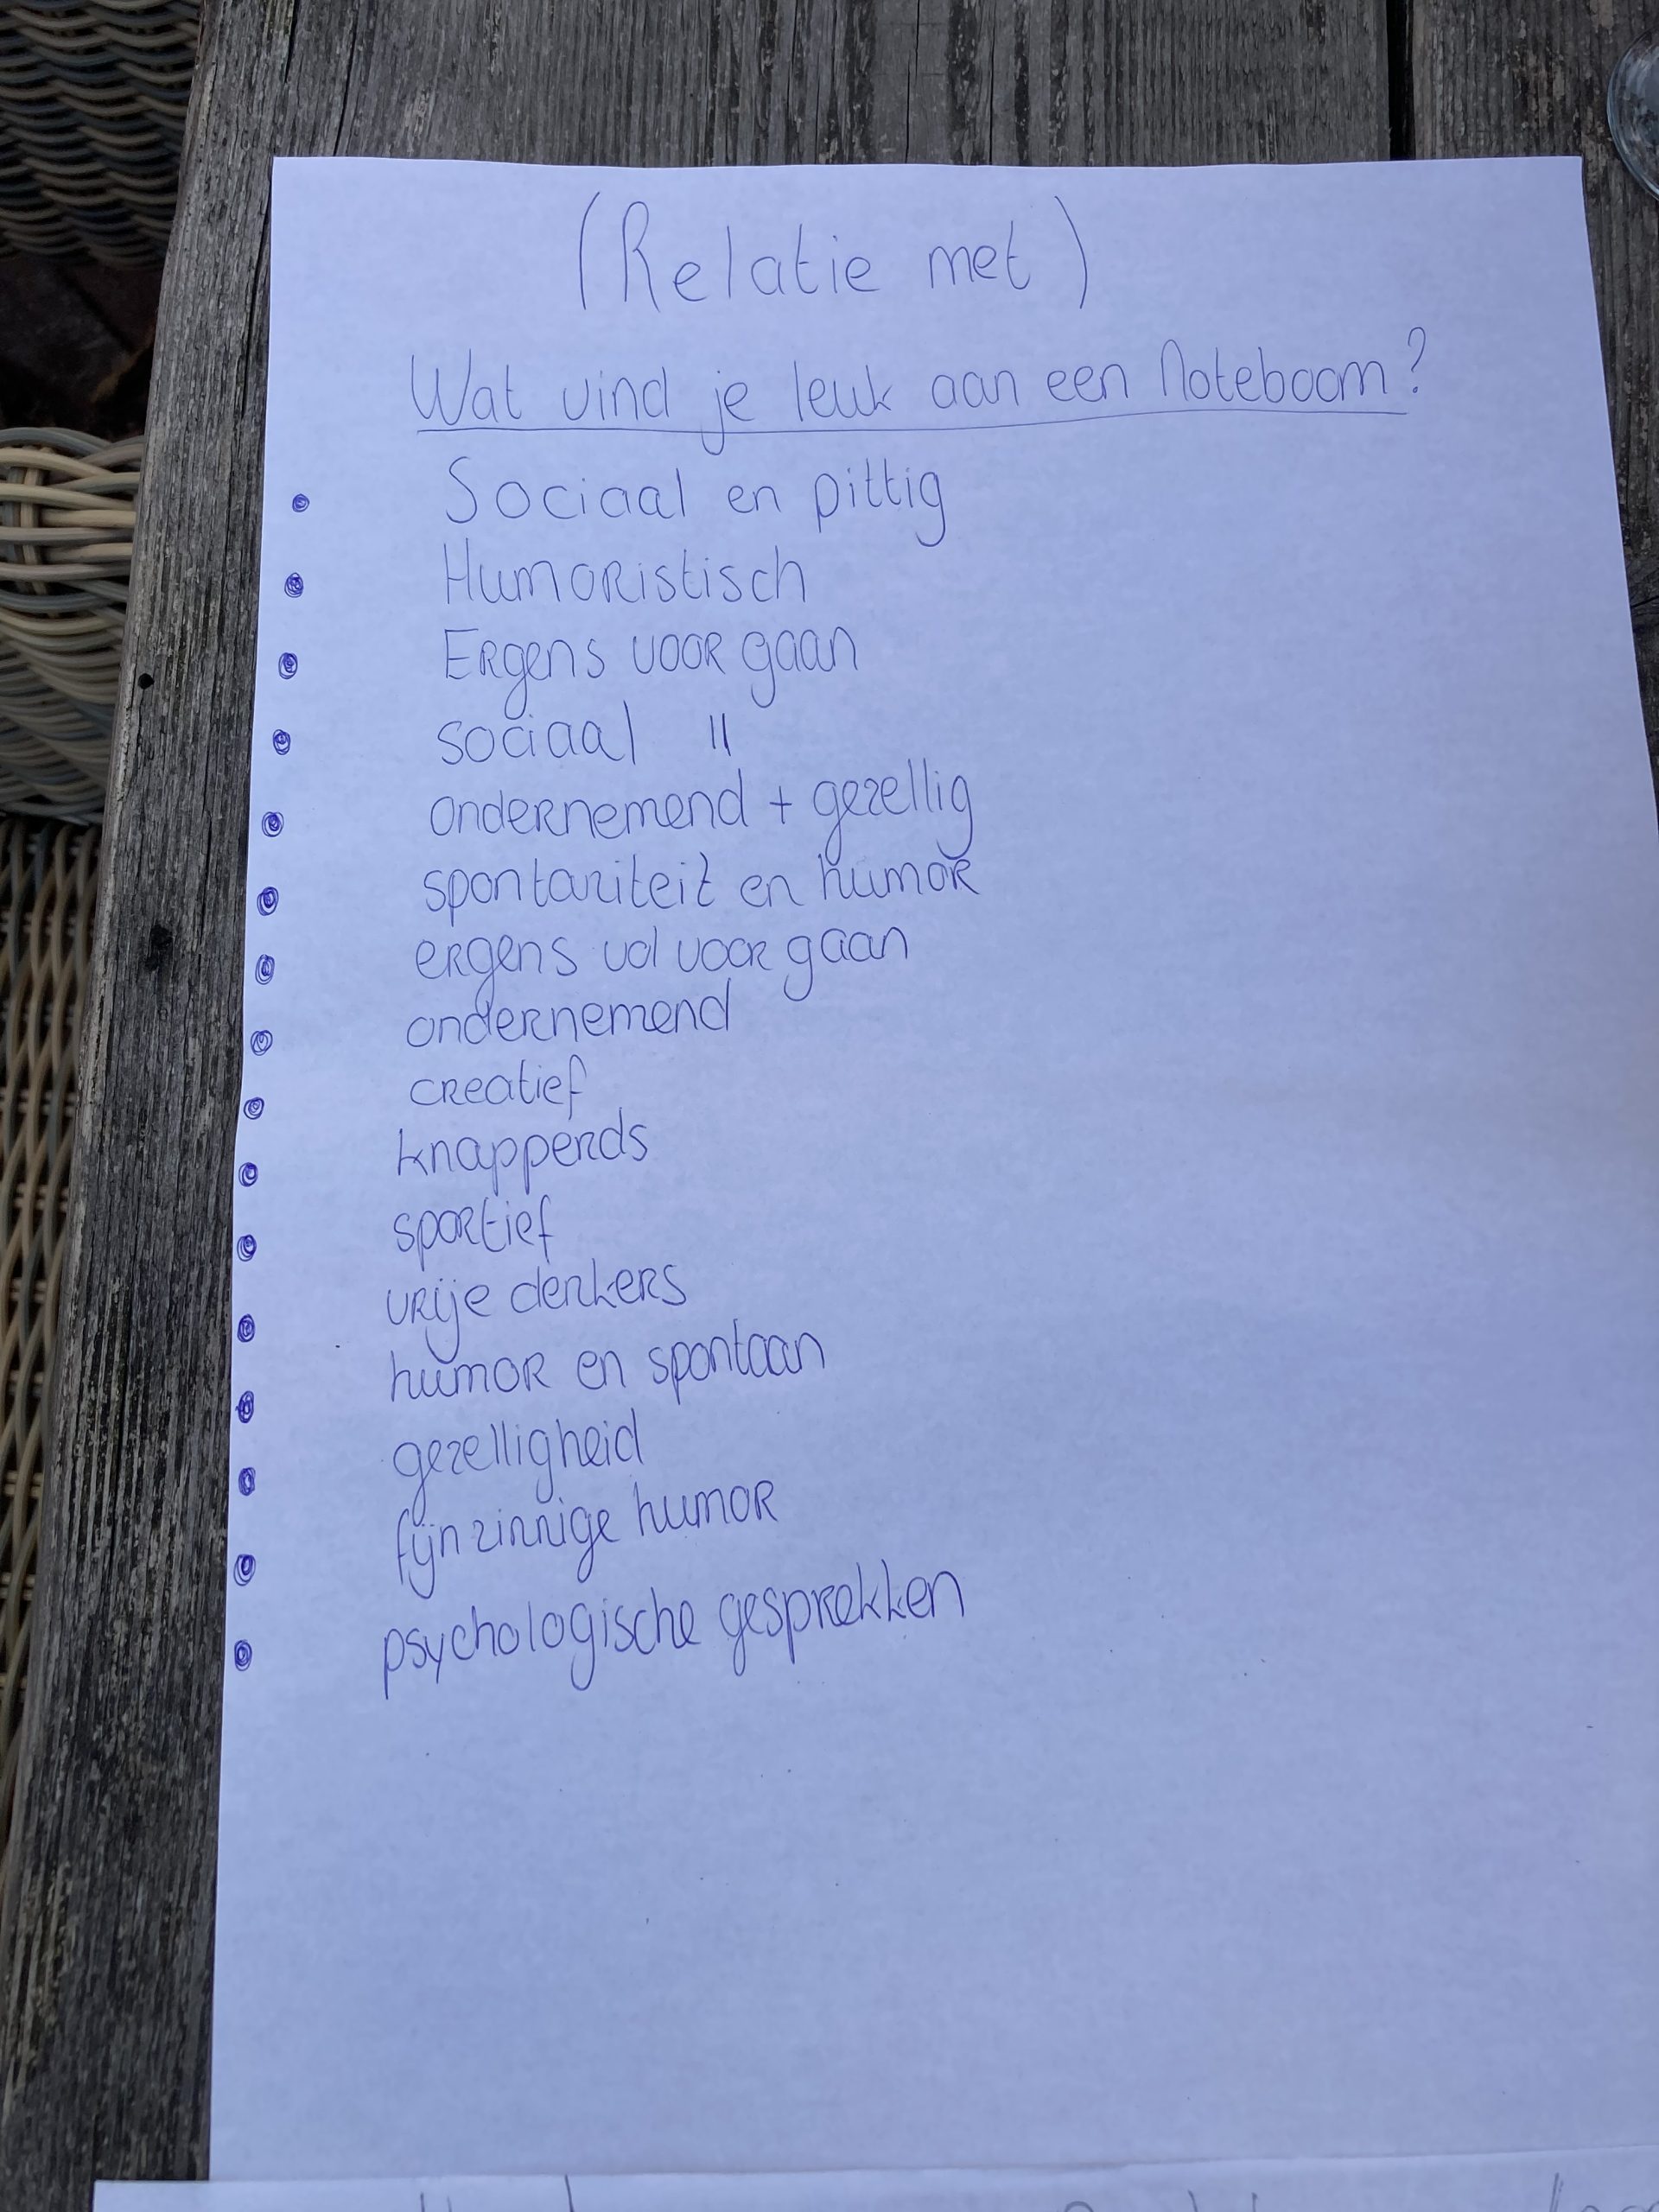 (Relatie met)
Wat vind je leuk aan een Noteboom?
• Sociaal en pittig
• Humoristisch
• Ergens voor gaan
• sociaal ||
• ondernemend + gezellig
• spontaniteit en humor
• ergens vol voor gaan
• ondernemend
• creatief
• knapperds
• sportief
• vrije denkers
• humor en spontaan
• gezelligheid
• fijnzinnige humor
• psychologische gesprekken